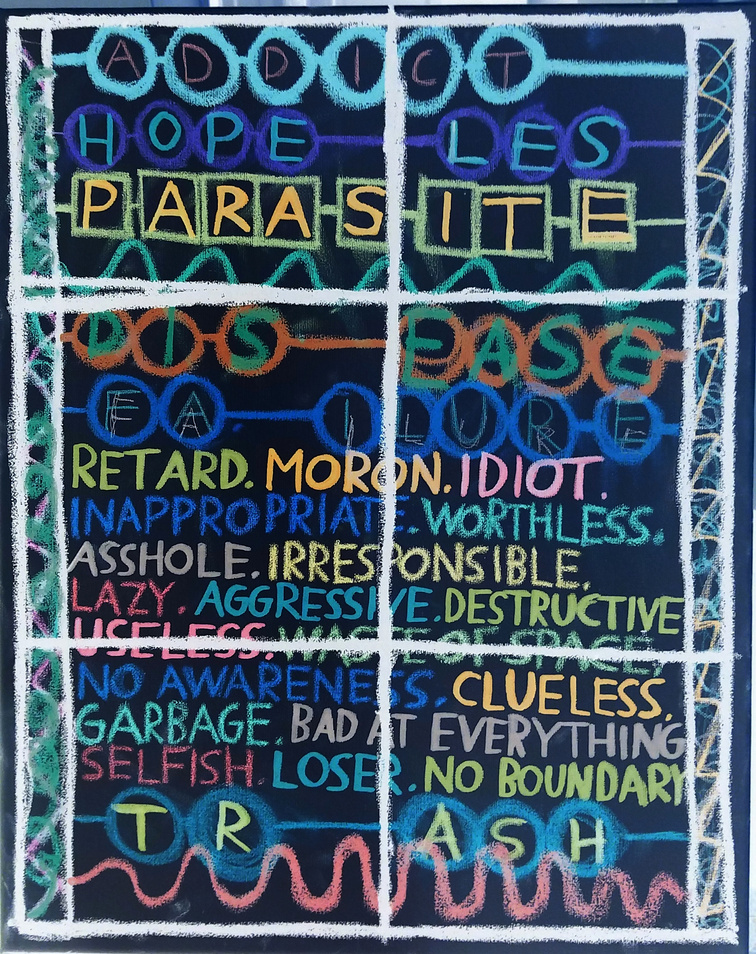 ADDICT
HOPE LES
PARASITE
DIS EASE
FA ILURE
RETARD. MORON. IDIOT.
INAPPROPRIATE. WORTHLESS.
ASSHOLE. IRRESPONSIBLE.
LAZY. AGGRESSIVE. DESTRUCTIVE
USELESS. WASTE OF SPACE.
NO AWARENESS. CLUELESS.
GARBAGE. BAD AT EVERYTHING
SELFISH. LOSER. NO BOUNDARY
TR ASH